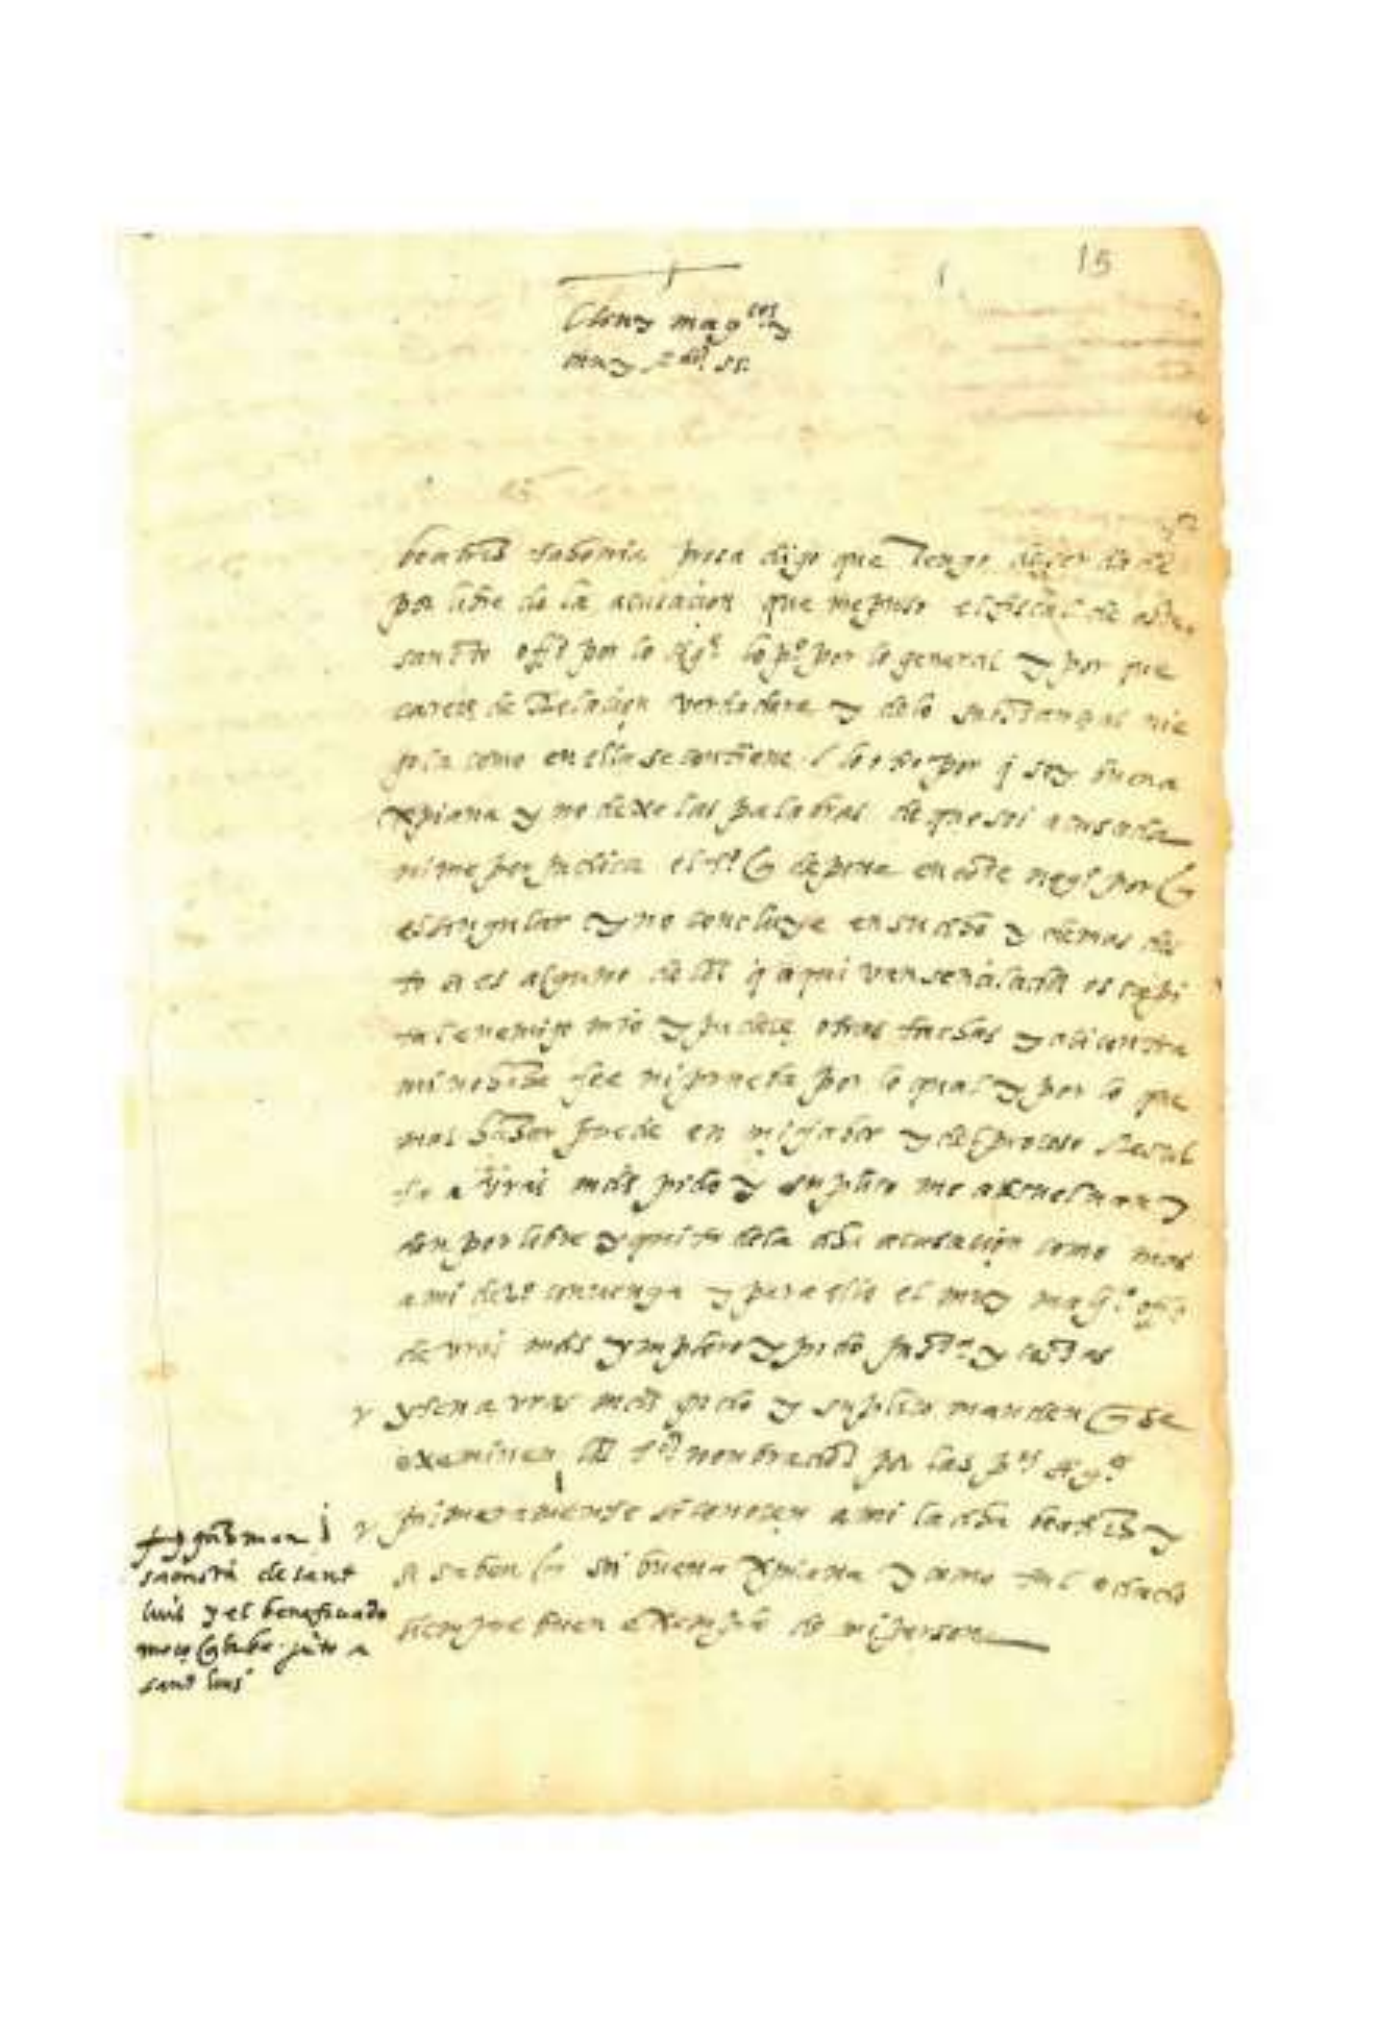 15
muy mag^cos y
muy R^dos ss.
beatris presa digo que tengo de ser dada
por libre de la acusacion que me puso el fiscal de este
santo off^o por lo sig^e lo p^o por lo general y por que
careçe de Relaçion verdadera y de lo sustançial nie
gola como en ella se contiene lo otro por q soy buena
xpiana y no dixe las palabras de que soi acusada
ni me perjudica el t^o q depone en este neg^o por q
es singular y no concluye en su dicho y demas des
to si es alguno de los q aqui van señalados es capi
tal enemigo mio y padeçe otras tachas y asi contra
mi no haze fee ni prueba por lo qual y por lo que
mas hazer puede en mi fabor y del proceso Resul
ta a vras mds pido y suplico me absuelvan y
den por libre y quita de la dha acusaçion como mas
a mi der^o convenga y para ello el muy mag^co off^o
de vras mds ynploro y pido just^a y costas
yten a vras mds pido y suplico manden q se
examinen los t^os nonbrados por las p^tas sig^es
primeramente si conoçen a mi la dha beatris y
si saben q soi buena xpiana y como tal e dado
siempre buen exemplo de mi persona
sacristan de sant
luis y el beneficiado
junto a
sant luis